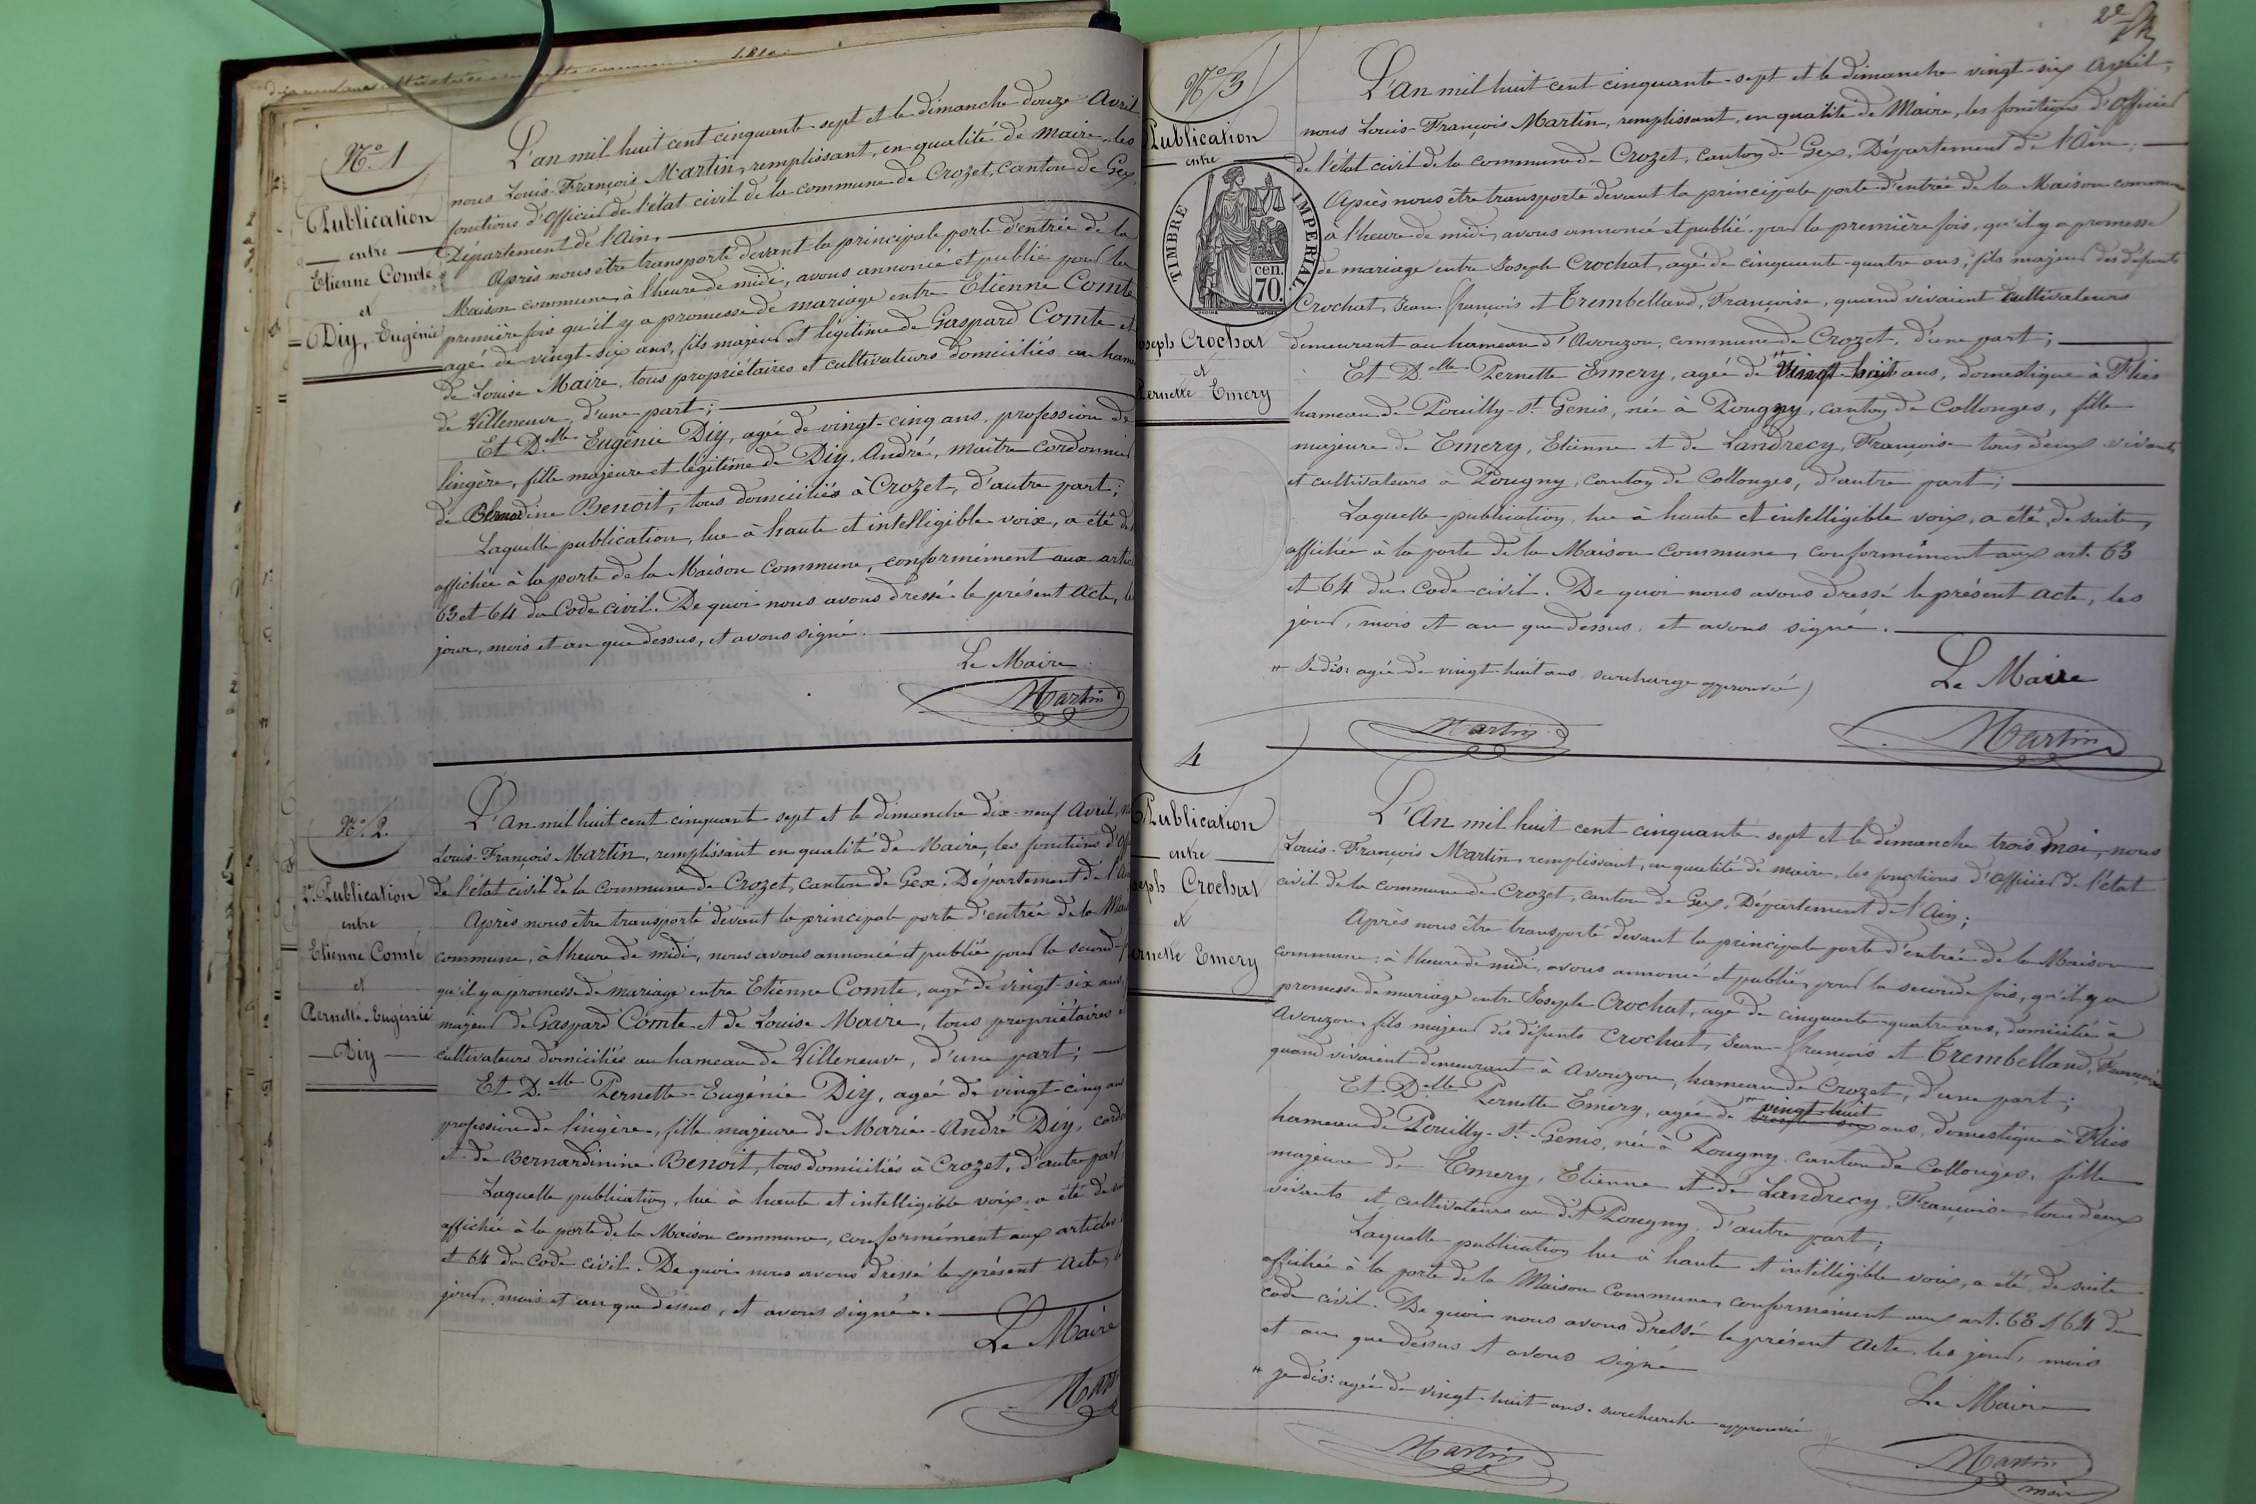 N.o 1
Publication
entre
Etienne Comte
et
Diy, Eugénie
L'an mil huit cent cinquante-sept et le dimanche douze Avril
nous Louis-François Martin, remplissant, en qualité de Maire, les
fonctions d'officier de l'état civil de la commune de Crozet, canton de Gex,
Département de l'Ain,
Après nous être transporté devant la principale porte d'entrée de la
Maison commune, à l'heure de midi, avons annoncé et publié pour la
première fois qu'il y a promesse de mariage entre Etienne Comte
agé de vingt-six ans, fils majeur et légitime de Gaspard Comte et
de Louise Maire, tous propriétaires et cultivateurs domiciliés au ham
de Villeneuve, d'une part;
Et D.elle Eugénie Diy, agée de vingt-cinq ans, profession de
lingère, fille majeure et légitime de Diy, André, maître cordonnier
de Bernardine Benoit, tous domiciliés à Crozet, d'autre part;
Laquelle publication, lue à haute et intelligible voix, a été de
affichée à la porte de la Maison Commune, conformément aux artic
63 et 64 du Code civil. De quoi nous avons dressé le présent acte, le
jour, mois et an que dessus, et avons signé.
Le Maire
Martin
N.o 2.
2.e Publication
entre
Etienne Comte
et
Pernette-Eugénie
Diy
L'An mil huit cent cinquante-sept et le dimanche dix-neuf Avril, n
Louis-François Martin, remplissant en qualité de Maire, les fonctions d'off
de l'état civil de la Commune de Crozet, canton de Gex, Département de l'A
Après nous être transporté devant la principale porte d'entrée de la Mai
commune, à l'heure de midi, nous avons annoncé et publié pour la second
qu'il y a promesse de mariage entre Etienne Comte, agé de vingt-six ans,
majeur de Gaspard Comte et de Louise Maire, tous propriétaires e
cultivateurs domiciliés au hameau de Villeneuve, d'une part;
Et D.elle Pernette-Eugénie Diy, agée de vingt-cinq ans
profession de lingère, fille majeure de Marie-André Diy, cordo
et de Bernardinine Benoit, tous domiciliés à Crozet, d'autre part,
Laquelle publication, lue à haute et intelligible voix, a été de su
affichée à la porte de la Maison commune, conformément aux articles
et 64 du code civil. De quoi nous avons dressé le présent Acte, le
jour, mois et an que dessus, et avons signé.
Le Maire
Mar
2e
N.o 3
Publication
entre
TIMBRE IMPERIAL
cen.
70.
Joseph Crochat
et
Pernette Emery
L'an mil huit cent cinquante-sept et le dimanche vingt-six Avril,
nous Louis-François Martin, remplissant, en qualité de Maire, les fonctions d'officier
de l'état civil de la commune de Crozet, canton de Gex, Département de l'Ain;
Après nous être transporté devant la principale porte d'entrée de la Maison commune
à l'heure de midi, avons annoncé et publié, pour la première fois, qu'il y a promesse
de mariage entre Joseph Crochat, agé de cinquante-quatre ans, fils majeur des défunts
Crochat, Jean-François et Trembelland, Françoise, quand vivaient cultivateurs
demeurant au hameau d'Avouzon, commune de Crozet, d'une part;
Et D.elle Pernette Emery, agée de vingt huit ans, domestique à Flies
hameau de Pouilly-St-Genis, née à Pougny, canton de Collonges, fille
majeure de Emery, Etienne et de Landrecy, Françoise tous deux vivants
et cultivateurs à Pougny, canton de Collonges, d'autre part;
Laquelle publication, lue à haute et intelligible voix, a été, de suite,
affichée à la porte de la Maison commune, conformément aux art. 63
et 64 du Code civil. De quoi nous avons dressé le présent acte, les
jour, mois et an que dessus, et avons signé.
" Je dis: agée de vingt-huit ans surcharge approuvée)
Le Maire
Martin
Martin
4
Publication
entre
Joseph Crochat
et
Pernette Emery
L'An mil huit cent cinquante-sept et le dimanche trois mai, nous
Louis-François Martin, remplissant, en qualité de maire, les fonctions d'officier de l'état
civil de la commune de Crozet, canton de Gex, Département de l'Ain;
Après nous être transporté devant la principale porte d'entrée de la Maison
commune, à l'heure de midi, avons annoncé et publié, pour la seconde fois, qu'il y a
promesse de mariage entre Joseph Crochat, agé de cinquante-quatre ans, domicilié à
Avouzon, fils majeur des défunts Crochat, Jean-François et Trembelland, Françoise
quand vivaient demeurant à Avouzon, hameau de Crozet, d'une part;
Et D.elle Pernette Emery, agée de " vingt-huit ans, domestique à Flies
hameau de Pouilly-St-Genis, née à Pougny, canton de Collonges, fille
majeure de Emery, Etienne et de Landrecy, Françoise tous deux
vivants et cultivateurs au dit Pougny, d'autre part;
Laquelle publication lue à haute et intelligible voix, a été, de suite
affichée à la porte de la Maison Commune, conformément aux art. 63 et 64 du
code civil. De quoi nous avons dressé le présent Acte, les jour, mois
et an que dessus et avons signé
" Je dis: agée de vingt-huit ans. surcharge approuvée
Le Maire
Martin
Martin
maire